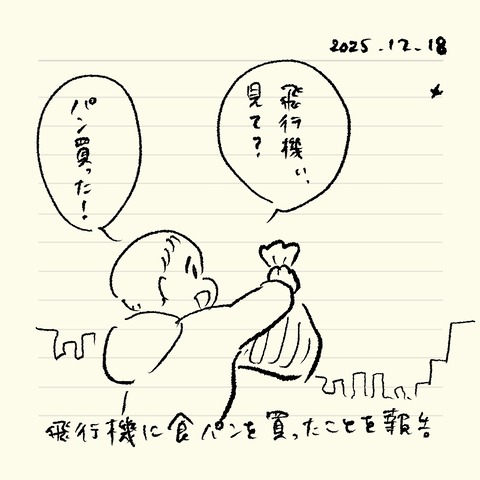 2025.12.18
飛行機い、
見て？
パン買った！
飛行機に食パンを買ったことを報告